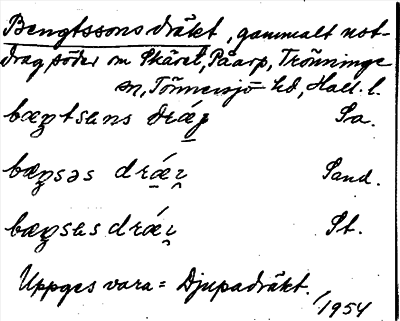 Bengtssons dräkt, gammalt not-
drag söder om Skäret, Påarp, Trönninge
sn, Tönnersjö hd, Hall. l.
bæƞtsɐns drǽᶎ Sa.
bæƞsəs drǽı̯ Sand.
bæƞsɐs drǽı̯ St.
Uppges vara = Djupadräkt.
/1954